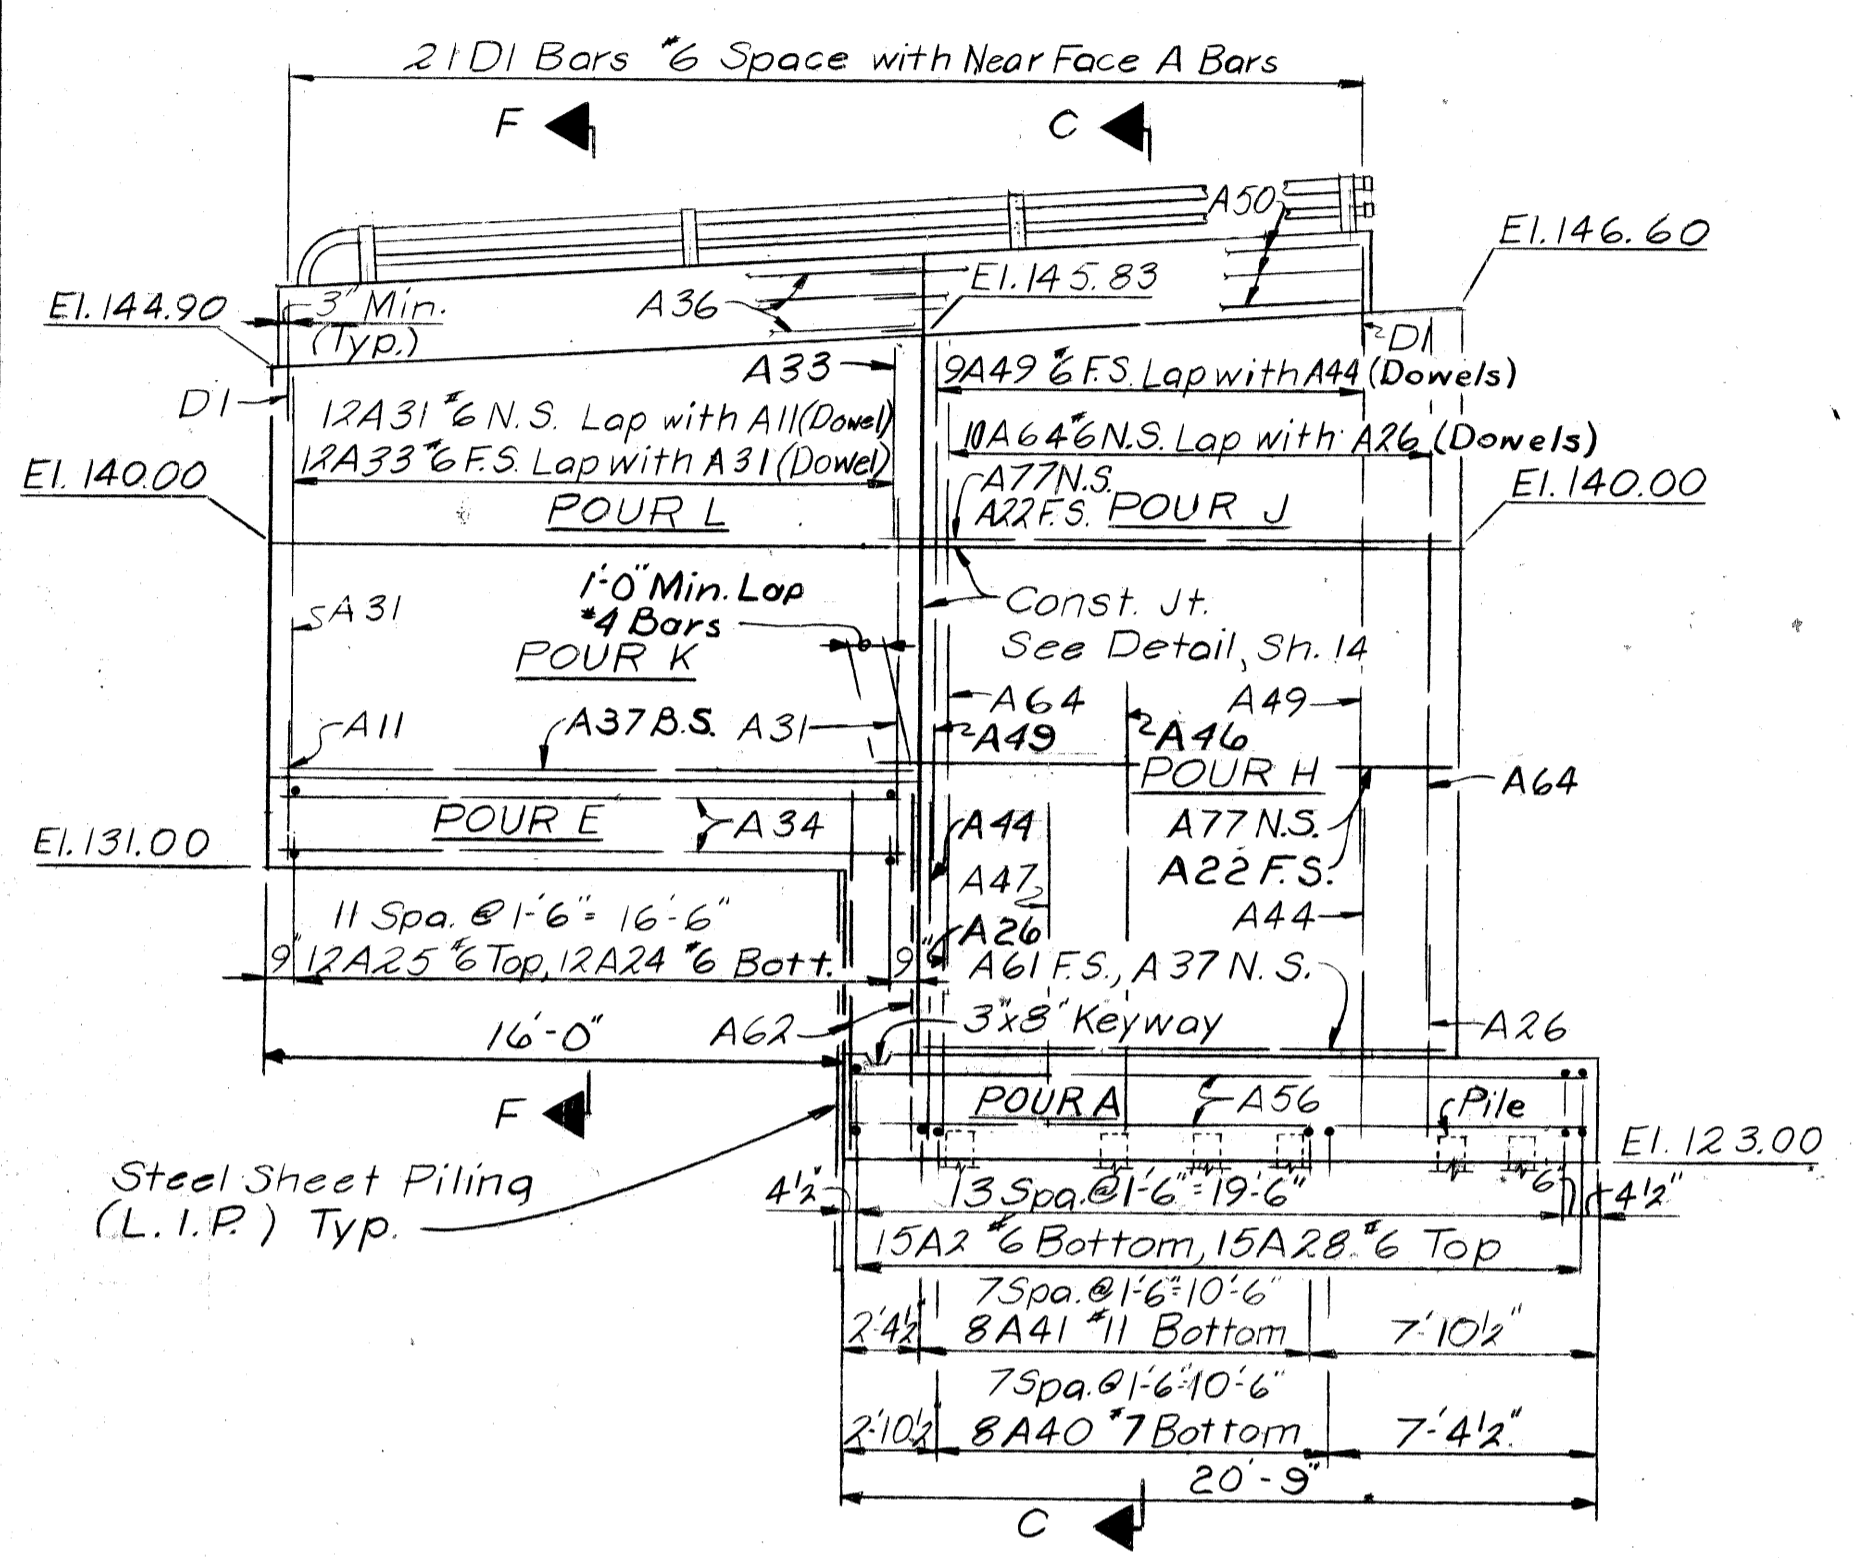 21 D1 Bars #6 Space with Near Face A Bars
F
C
A50
El. 146.60
El. 145.83
A36
El. 144.90
3" Min.
(Typ.)
D1
A33
9A49 #6 F.S. Lap with A44 (Dowels)
D1
12A31 #6 N.S. Lap with A11 (Dowel)
10A64 #6 N.S. Lap with A26 (Dowels)
12A33 #6 F.S. Lap with A31 (Dowel)
El. 140.00
A77 N.S.
A22 F.S.
POUR L
POUR J
El. 140.00
1'-0" Min. Lap
#4 Bars
A31
Const. Jt.
See Detail, Sh. 14
POUR K
A64
A49
A11
A37 B.S.
A31
A49
A46
POUR H
A64
POUR E
A34
A44
A77 N.S.
El. 131.00
A47
A22 F.S.
11 Spa. @ 1'-6" = 16'-6"
A44
A26
9"
12A25 #6 Top, 12A24 #6 Bott.
9"
A61 F.S., A37 N.S.
16'-0"
A62
3"x8" Keyway
A26
F
POUR A
A56
Pile
El. 123.00
Steel Sheet Piling
(L.I.P.) Typ.
4½"
13 Spa. @ 1'-6" = 19'-6"
6"
4½"
15A2 #6 Bottom, 15A28 #6 Top
7 Spa. @ 1'-6" = 10'-6"
2'-4½"
8A41 #11 Bottom
7'-10½"
7 Spa. @ 1'-6" = 10'-6"
2'-10½"
8A40 #7 Bottom
7'-4½"
20'-9"
C